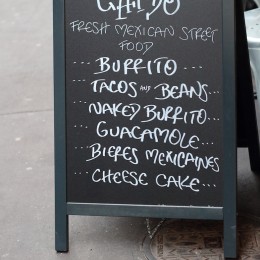 FRESH MEXICAN STREET
FOOD
BURRITO ...
TACOS AND BEANS...
NAKED BURRITO...
GUACAMOLE...
BIERES MEXICAINES
CHEESE CAKE...